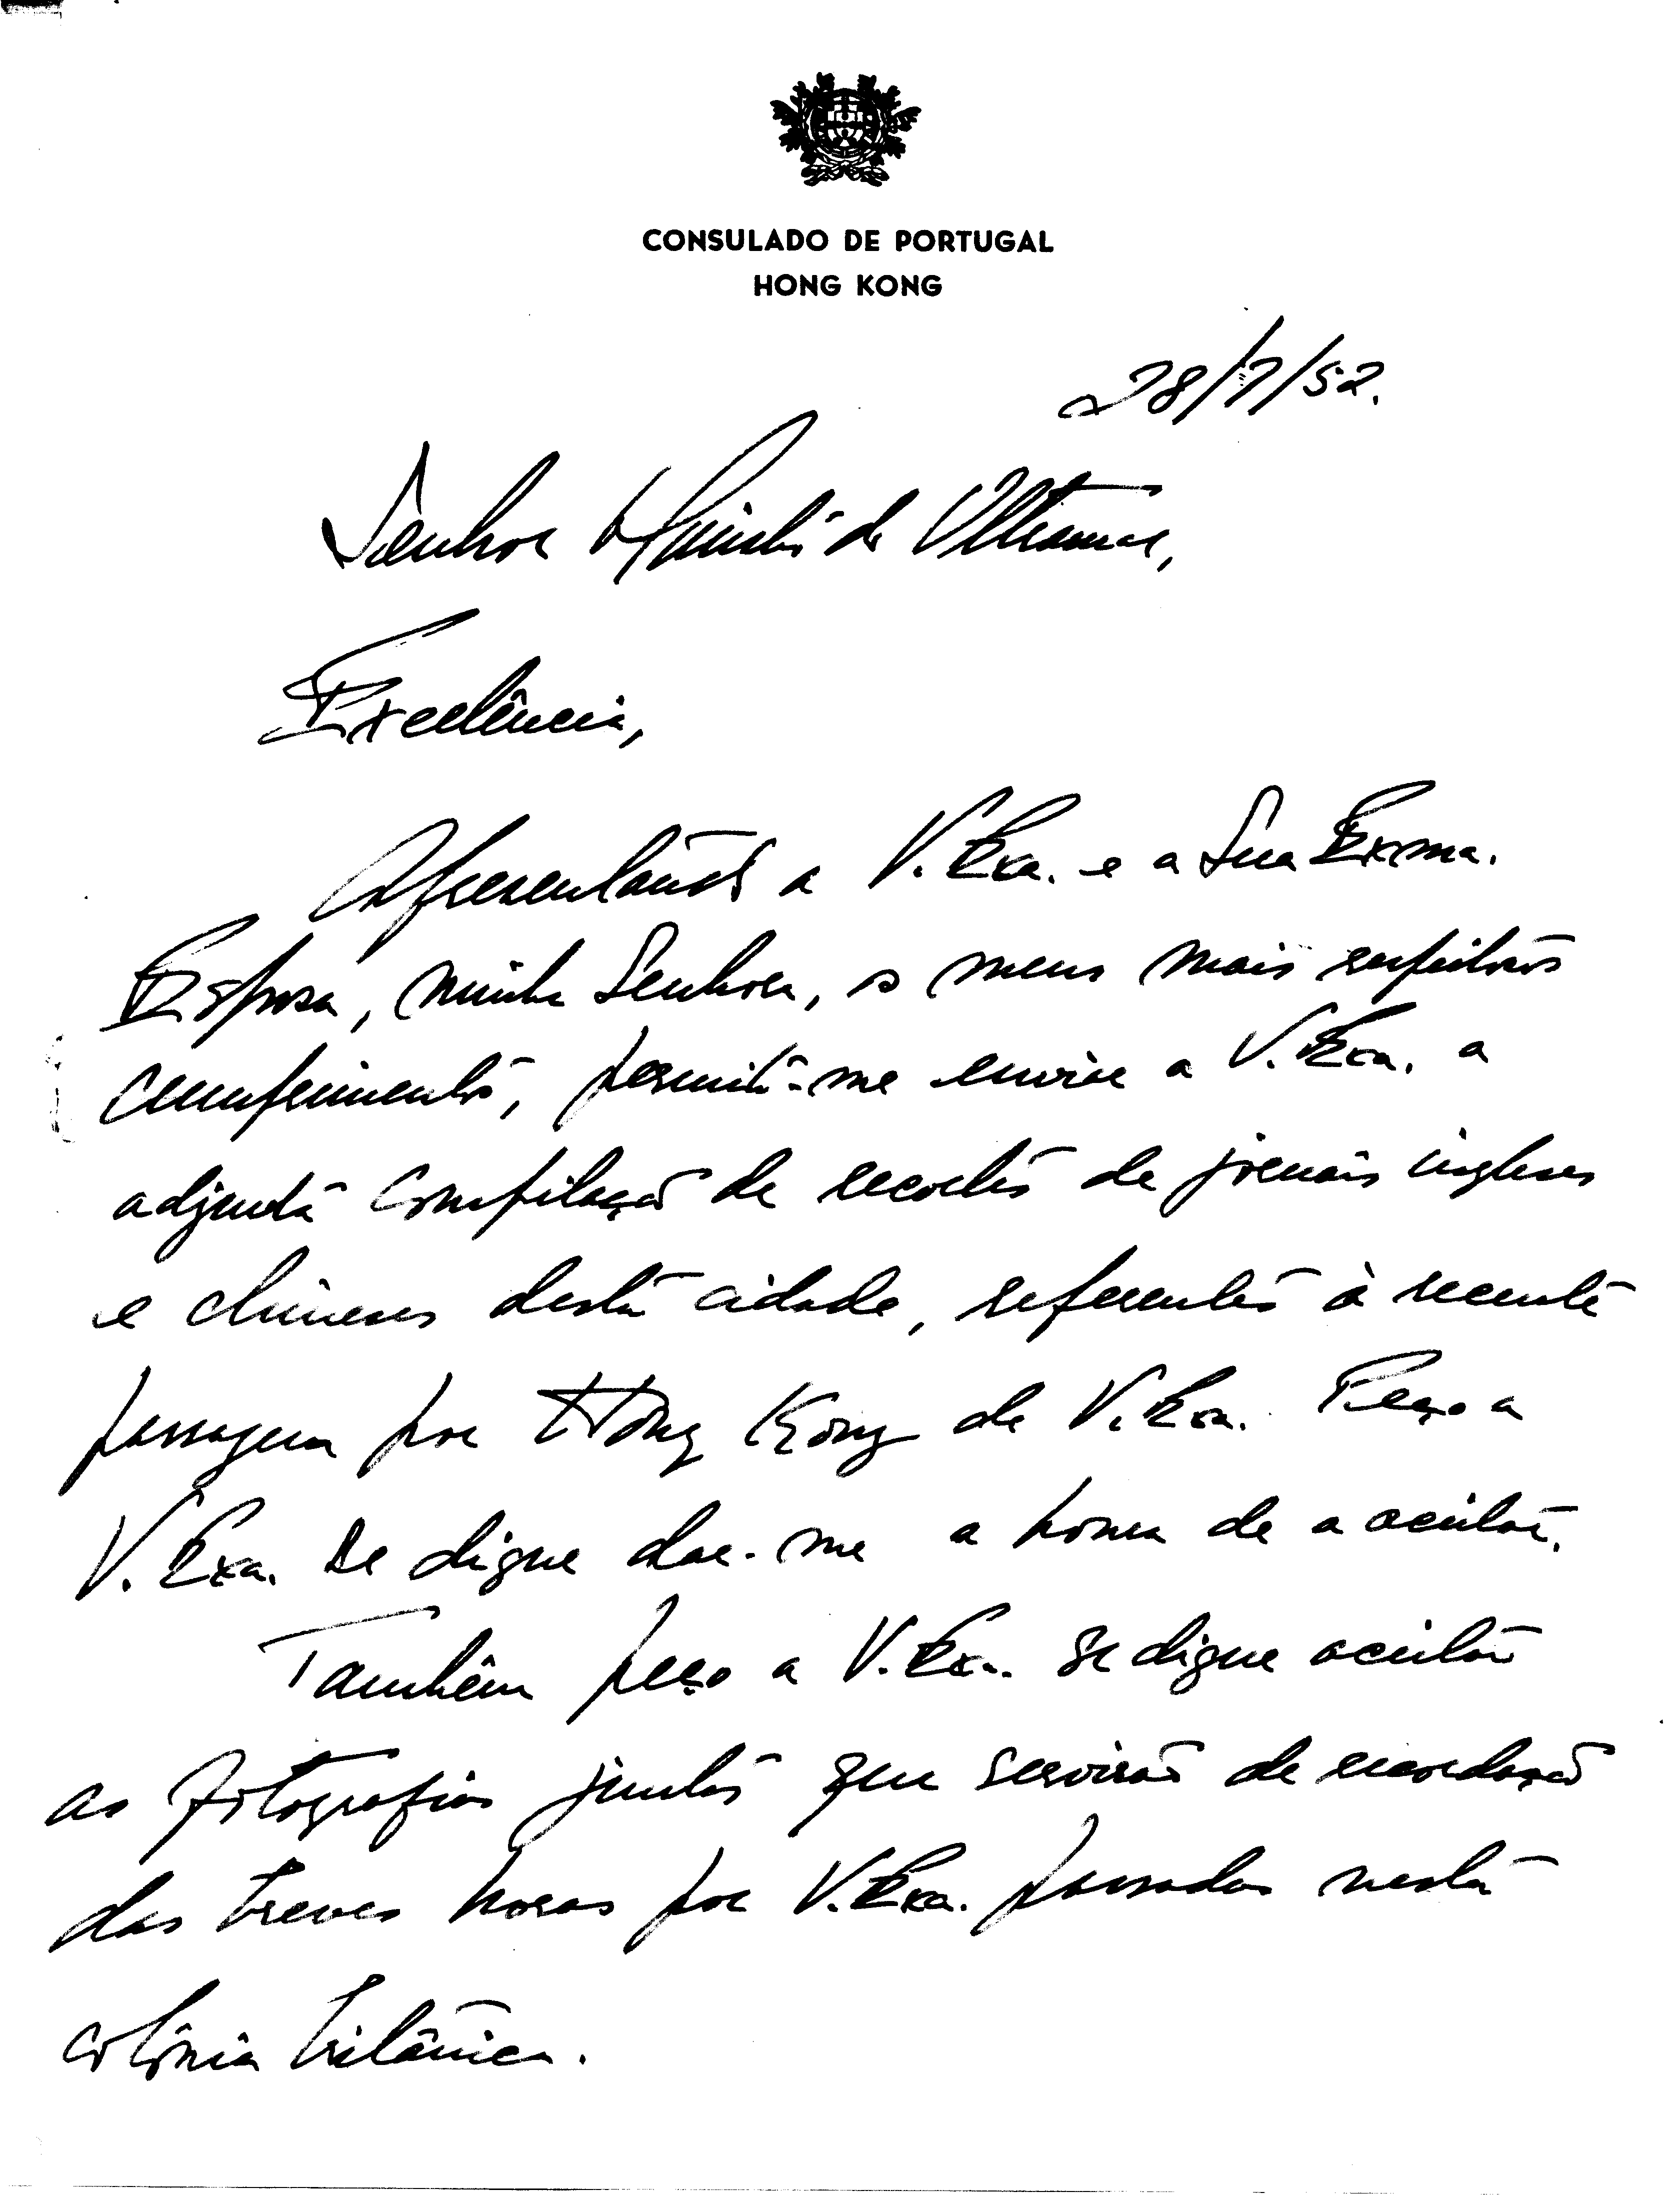 CONSULADO DE PORTUGAL
HONG KONG
28/7/52.
Senhor Ministro do Ultramar,
Excelência,
Apresentando a V. Exa. e a Sua Exma.
Esposa, minha Senhora, os meus mais respeitosos
cumprimentos, permito-me enviar a V. Exa. a
adjunta compilação de recortes de jornais ingleses
e chineses desta cidade, referentes à recente
passagem por Hong Kong de V. Exa. Peço a
V. Exa. se digne dar-me a honra de a aceitar.
Também peço a V. Exa. se digne aceitar
as fotografias juntas que servirão de recordação
das breves horas por V. Exa. passadas nesta
colónia britânica.